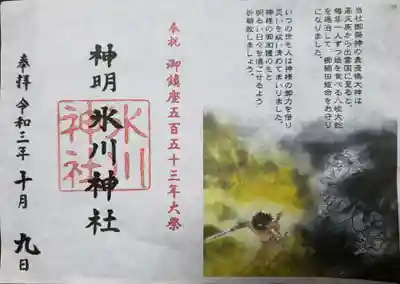 当社御祭神の素盞嗚大神は
高天原から出雲国に降ると、
毎年一人ずつ姫を食べる八岐大蛇
を退治して 櫛稲田姫命をお守り
になりました。
いつの世も人は神様の御力を借り
災いを祓い清めてまいりました。
神様の御加護のもと
明るい日々を過ごせるよう
祈願致しましょう。
奉祝 御鎮座五百五十三年大祭
神明 氷川神社
氷川
神社
奉拝 令和三年 十月 九日